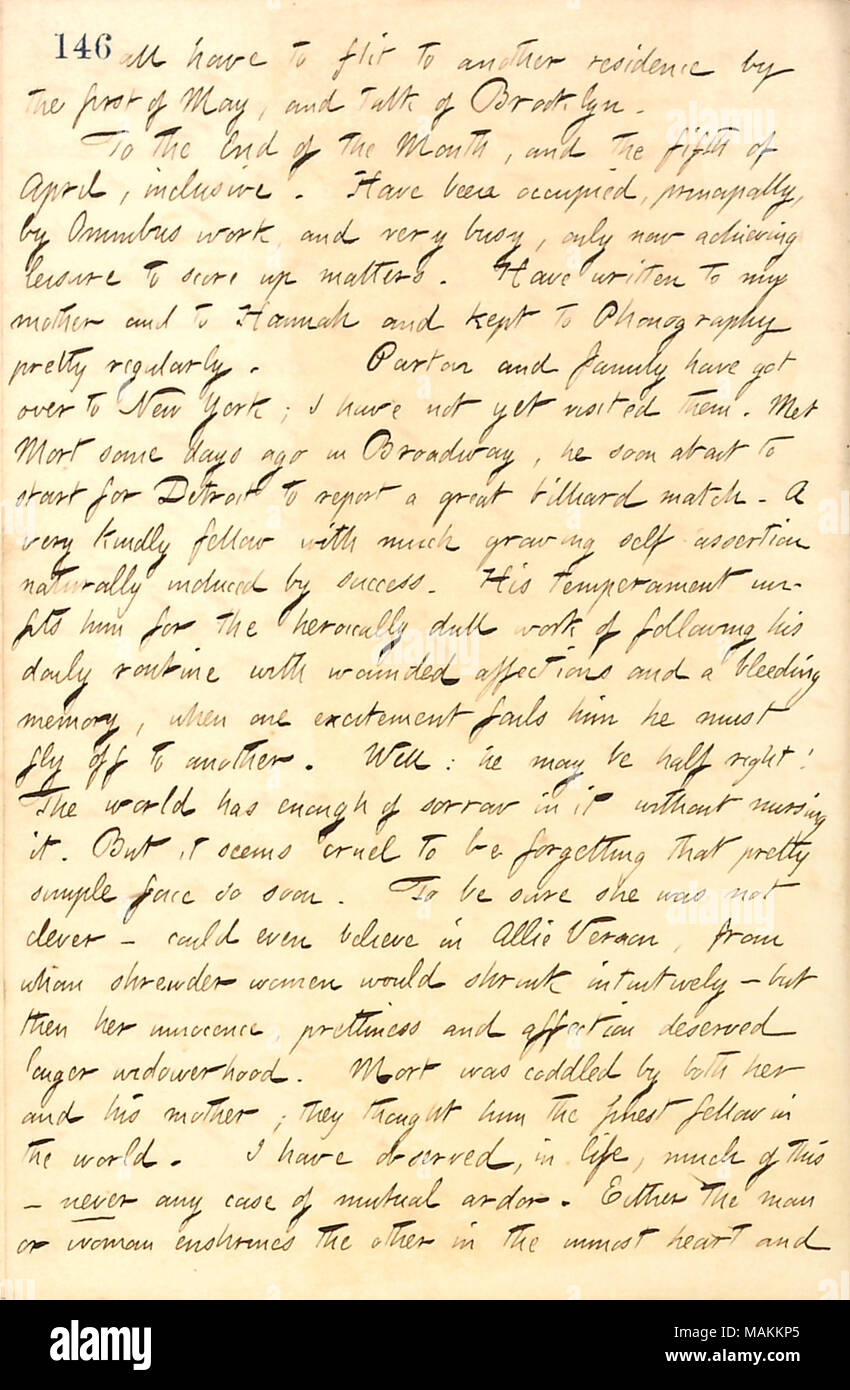 146
all have to flit to another residence by
the first of May, and talk of Brooklyn.
To the End of the Month, and the fifth of
April, inclusive. Have been occupied, principally,
by Omnibus work, and very busy, only now achieving
leisure to score up matters. Have written to my
mother and to Hannah and kept to Phonography
pretty regularly. Parton and family have got
over to New York; I have not yet visited them. Met
Mort some days ago in Broadway, he soon about to
start for Detroit to report a great billiard match. A
very kindly fellow with much growing self assertion
naturally induced by success. His temperament un-
fits him for the heroically dull work of following his
daily routine with wounded affections and a bleeding
memory, when one excitement fails him he must
fly off to another. Well: he may be half right!
The world has enough of sorrow in it without nursing
it. But it seems cruel to be forgetting that pretty
simple face so soon. To be sure she was not
clever — could even believe in Allie Vernon, from
whom shrewder women would shrink intuitively — but
then her innocence, prettiness and affection deserved
longer widowerhood. Mort was coddled by both her
and his mother; they thought him the finest fellow in
the world. I have observed, in life, much of this
— never any case of mutual ardor. Either the man
or woman enshrines the other in the inmost heart and
alamy
Image ID: MAKKP5
www.alamy.com